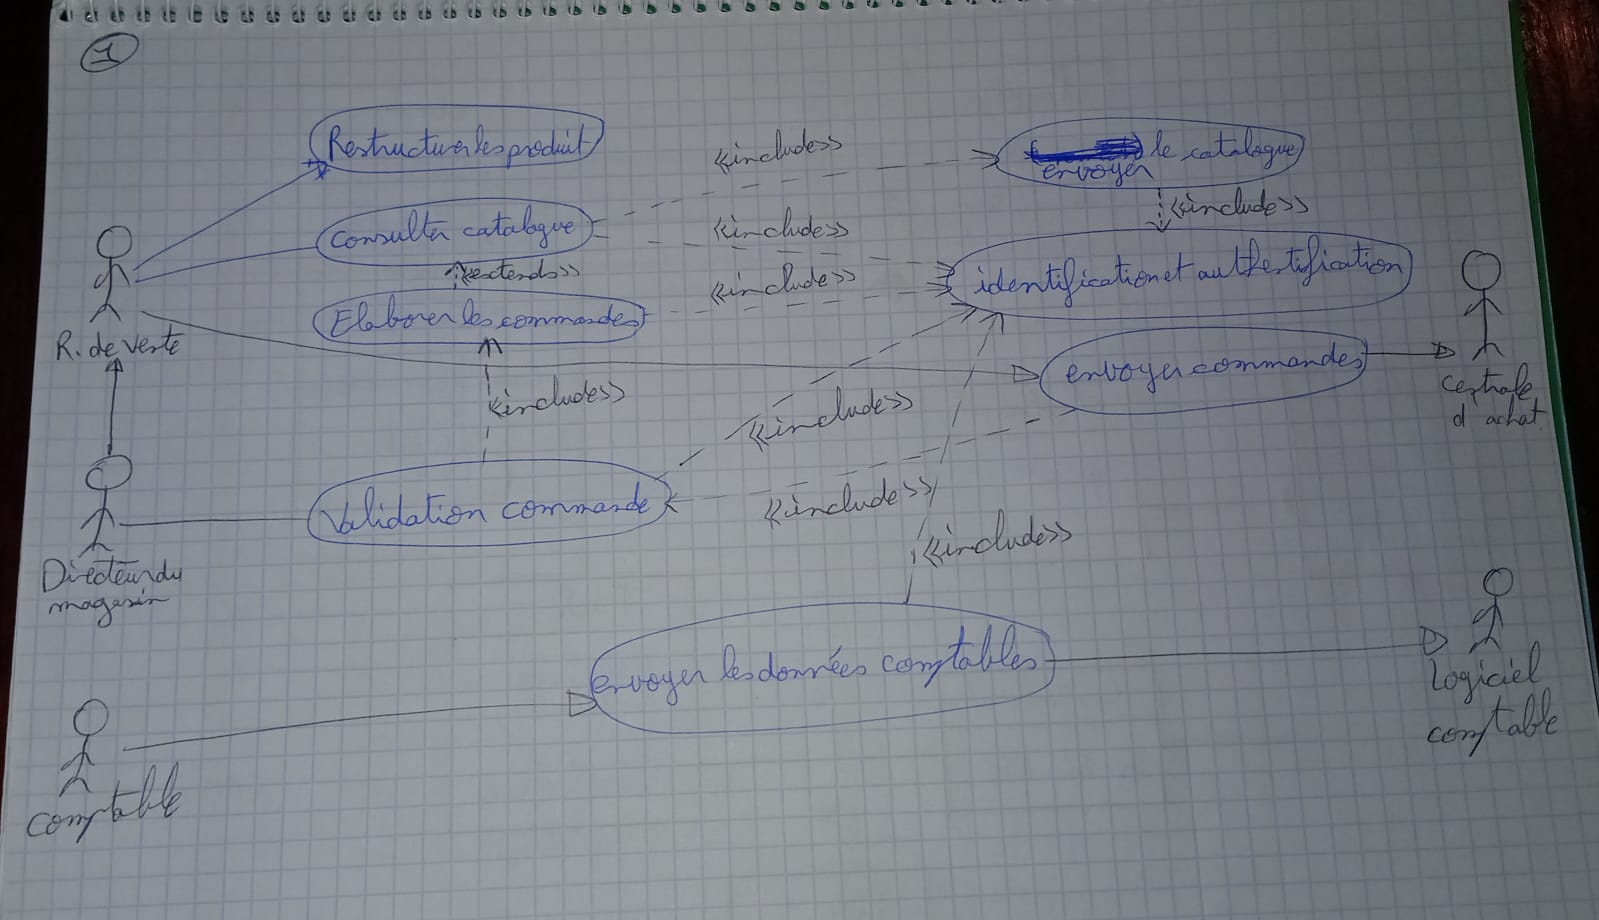 1
Restructurer les produit
<<include>>
le catalogue
envoyer
Consulter catalogue
<<include>>
<<include>>
<<extends>>
<<include>>
identification et authentification
Elaborer les commandes
R. de vente
envoyer commandes
Centrale
d'achat
<<include>>
<<include>>
Validation commande
<<include>>
<<include>>
Directeur du
magasin
envoyer les données comptables
Logiciel
comptable
comptable